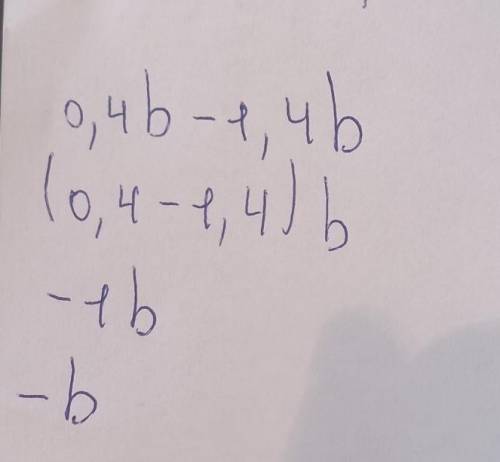 0,4b-1,4b
(0,4-1,4)b
-1b
-b